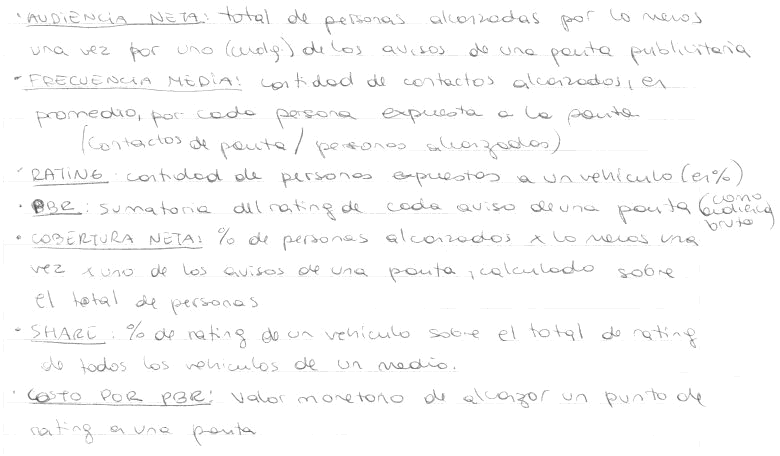 · AUDIENCIA NETA: total de personas alcanzadas por lo menos
una vez por uno (cualq.) de los avisos de una pauta publicitaria
· FRECUENCIA MEDIA: cantidad de contactos alcanzados, en
promedio, por cada persona expuesta a la pauta
(contactos de pauta / personas alcanzadas)
· RATING: cantidad de personas expuestas a un vehículo (en %)
· PBR: sumatoria del rating de cada aviso de una pauta (como
audiencia
bruta)
· COBERTURA NETA: % de personas alcanzados x lo menos una
vez x uno de los avisos de una pauta, calculado sobre
el total de personas
· SHARE: % de rating de un vehículo sobre el total de rating
de todos los vehículos de un medio.
· COSTO POR PBR: Valor monetario de alcanzar un punto de
rating en una pauta